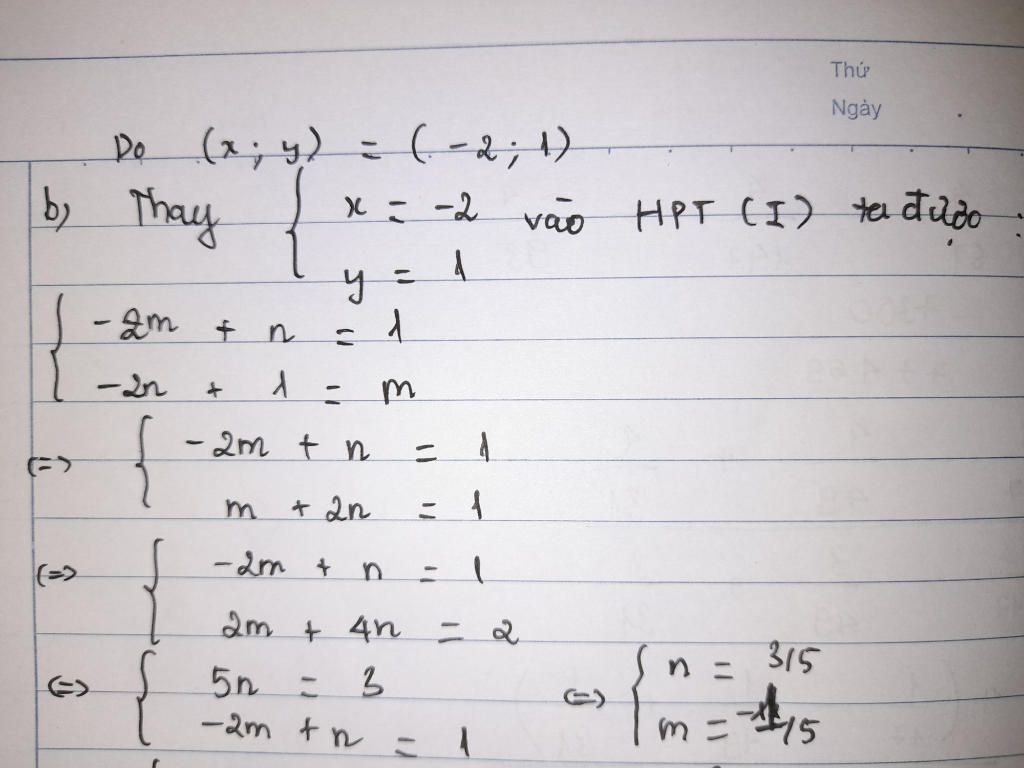 Thứ
Ngày
Do (x; y) = (-2; 1)
b) Thay { x = -2 vào HPT (I) ta được :
y = 1
{ -2m + n = 1
-2n + 1 = m
<=> { -2m + n = 1
m + 2n = 1
<=> { -2m + n = 1
2m + 4n = 2
<=> { 5n = 3 <=> { n = 3/5
-2m + n = 1 m = -1/5